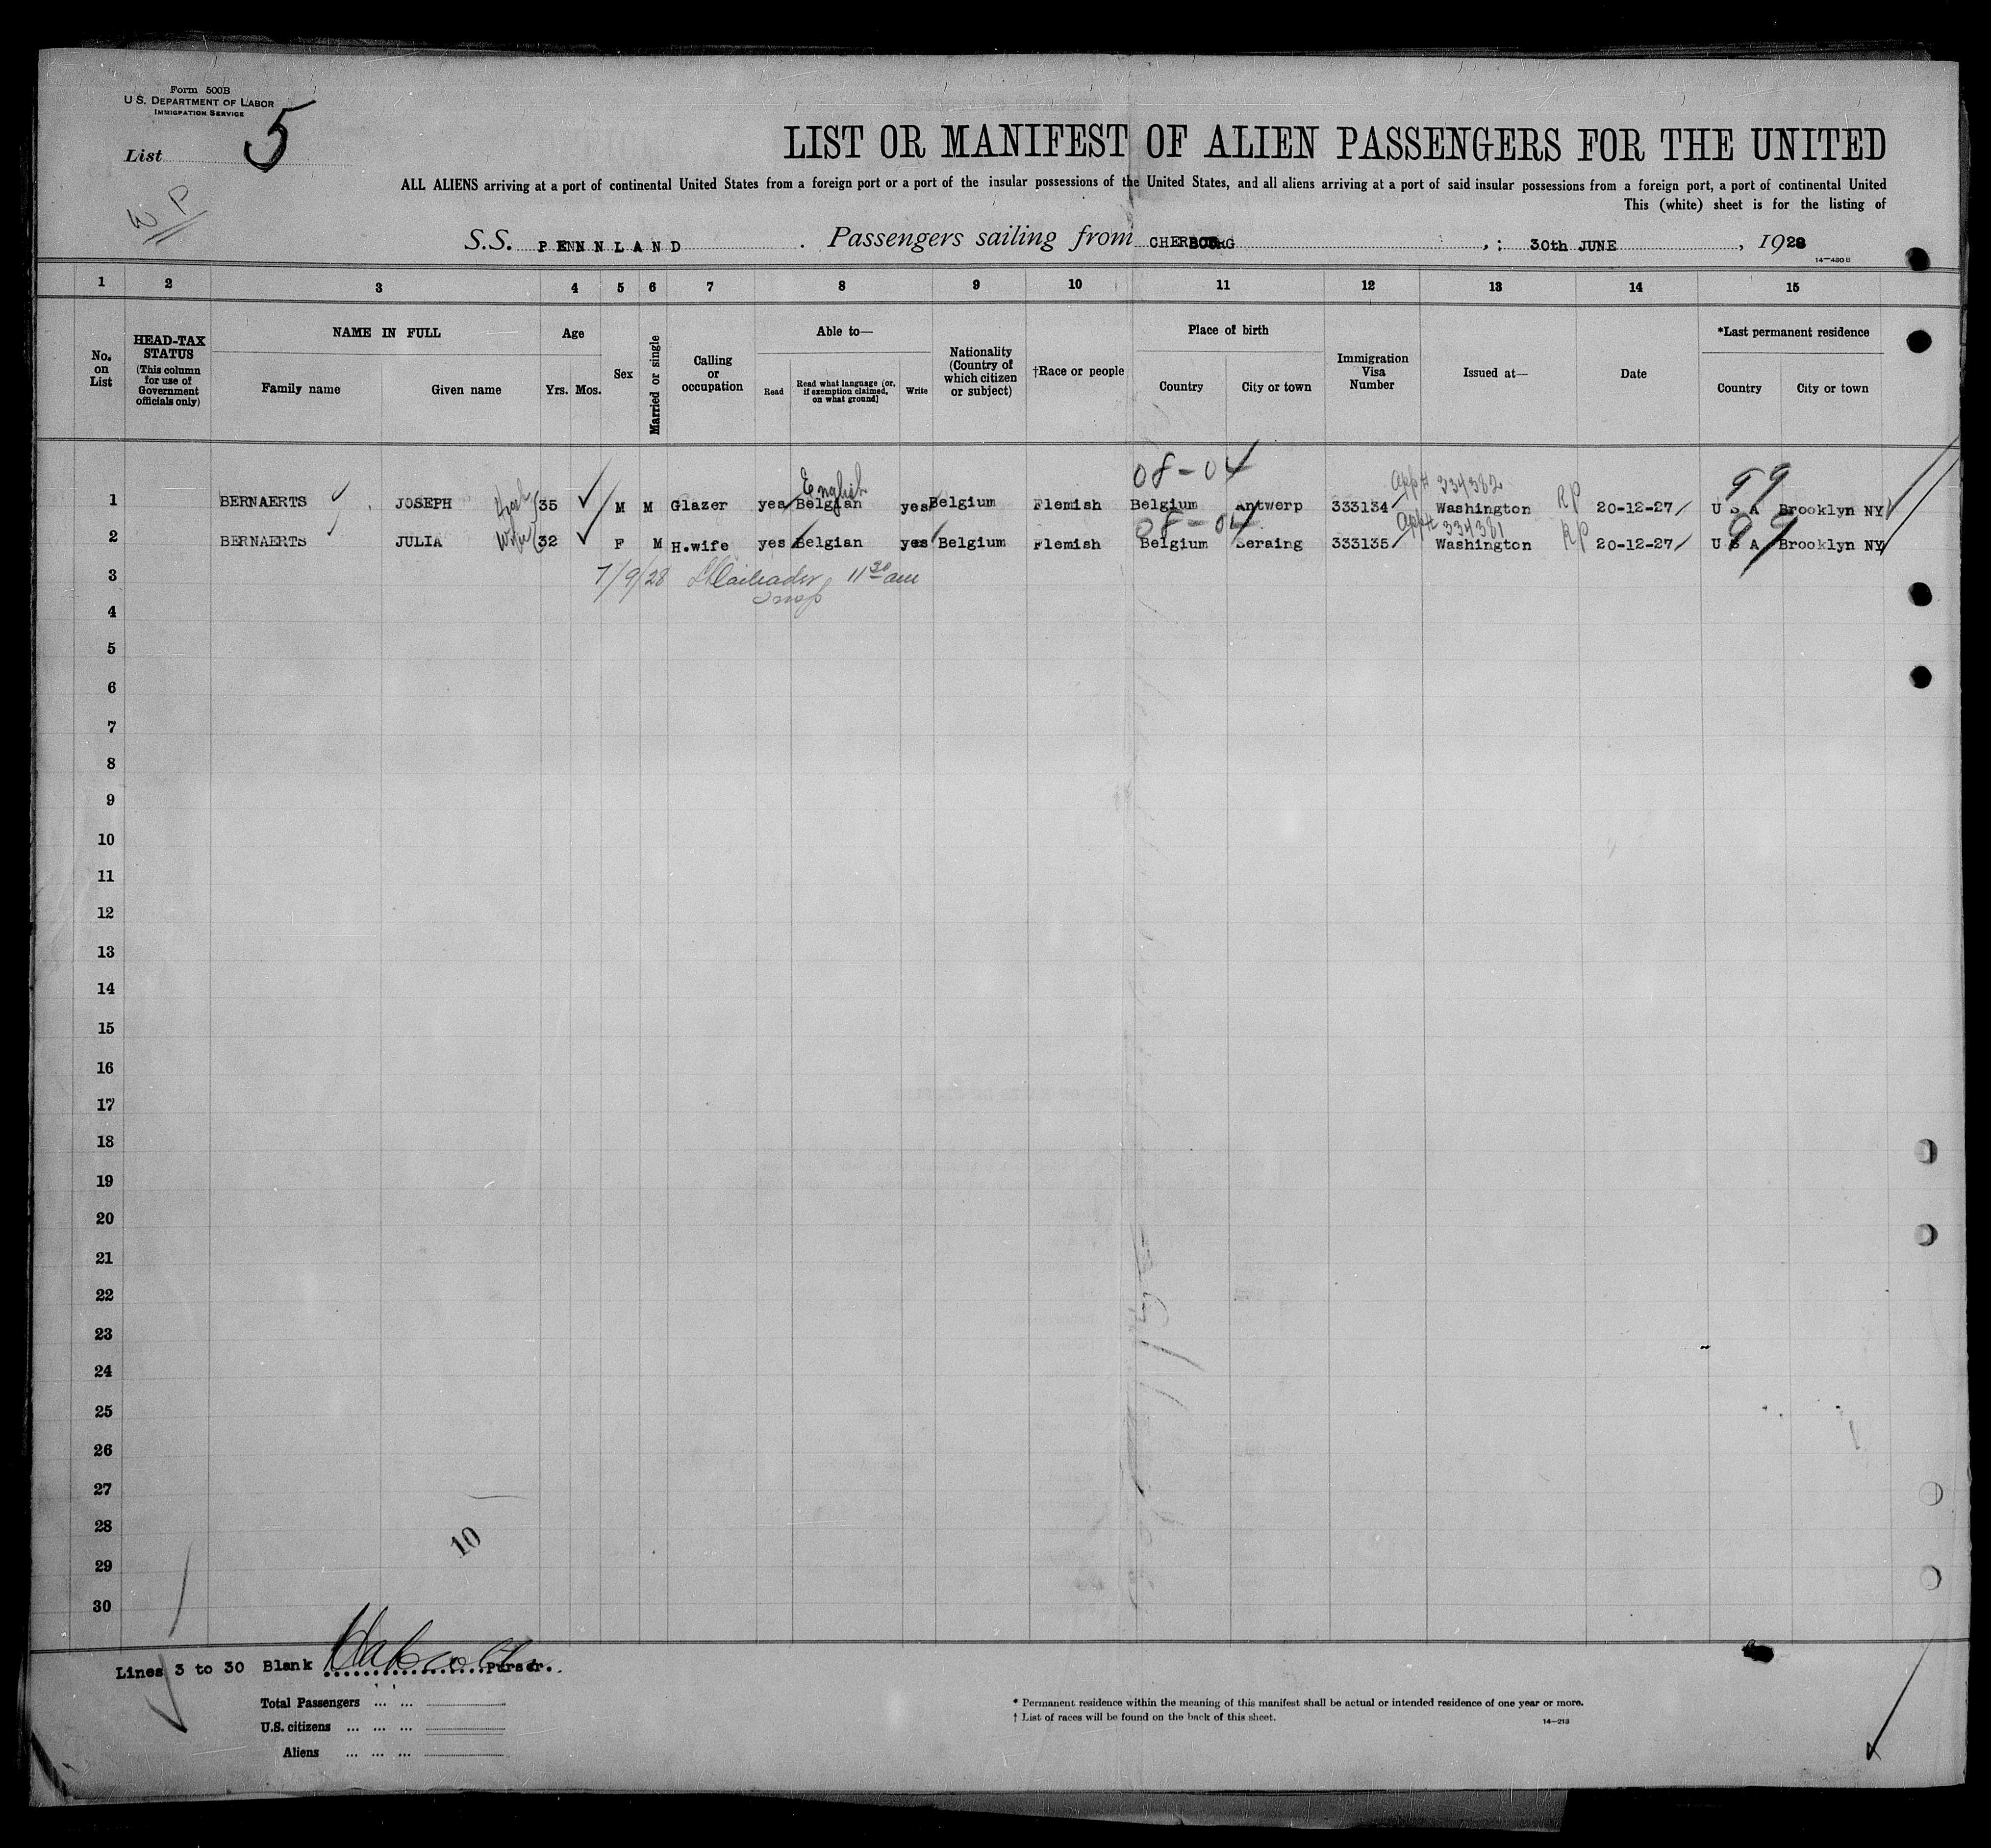 Form 500B
U. S. DEPARTMENT OF LABOR
IMMIGRATION SERVICE
List 5
W P
LIST OR MANIFEST OF ALIEN PASSENGERS FOR THE UNITED
ALL ALIENS arriving at a port of continental United States from a foreign port or a port of the insular possessions of the United States, and all aliens arriving at a port of said insular possessions from a foreign port, a port of continental United
This (white) sheet is for the listing of
S.S. PENNLAND . Passengers sailing from CHERBOURG , : 30th JUNE , 1928
14-480 B
1 2 3 4 5 6 7 8 9 10 11 12 13 14 15
No. on List
HEAD-TAX STATUS (This column for use of Government officials only)
NAME IN FULL
Family name Given name
Age
Yrs. Mos.
Sex
Married or single
Calling or occupation
Able to—
Read Read what language (or, if exemption claimed, on what ground) Write
Nationality (Country of which citizen or subject)
†Race or people
Place of birth
Country City or town
Immigration Visa Number
Issued at—
Date
*Last permanent residence
Country City or town
English 08-04 app# 334382 99
1 BERNAERTS JOSEPH 35 M M Glazer yes Belgian yes Belgium Flemish Belgium Antwerp 333134 Washington RP 20-12-27 U S A Brooklyn NY
08-04 app# 334381 99
2 BERNAERTS JULIA Wife 32 F M H.wife yes Belgian yes Belgium Flemish Belgium Seraing 333135 Washington RP 20-12-27 U S A Brooklyn NY
3 7/9/28 11 30 am
Insp
4
5
6
7
8
9
10
11
12
13
14
15
16
17
18
19
20
21
22
23
24
25
26
27
28
10
29
30
Lines 3 to 30 Blank Purser.
Total Passengers ... ...
U.S. citizens ... ... ...
Aliens ... ... ...
* Permanent residence within the meaning of this manifest shall be actual or intended residence of one year or more.
† List of races will be found on the back of this sheet.
14-213